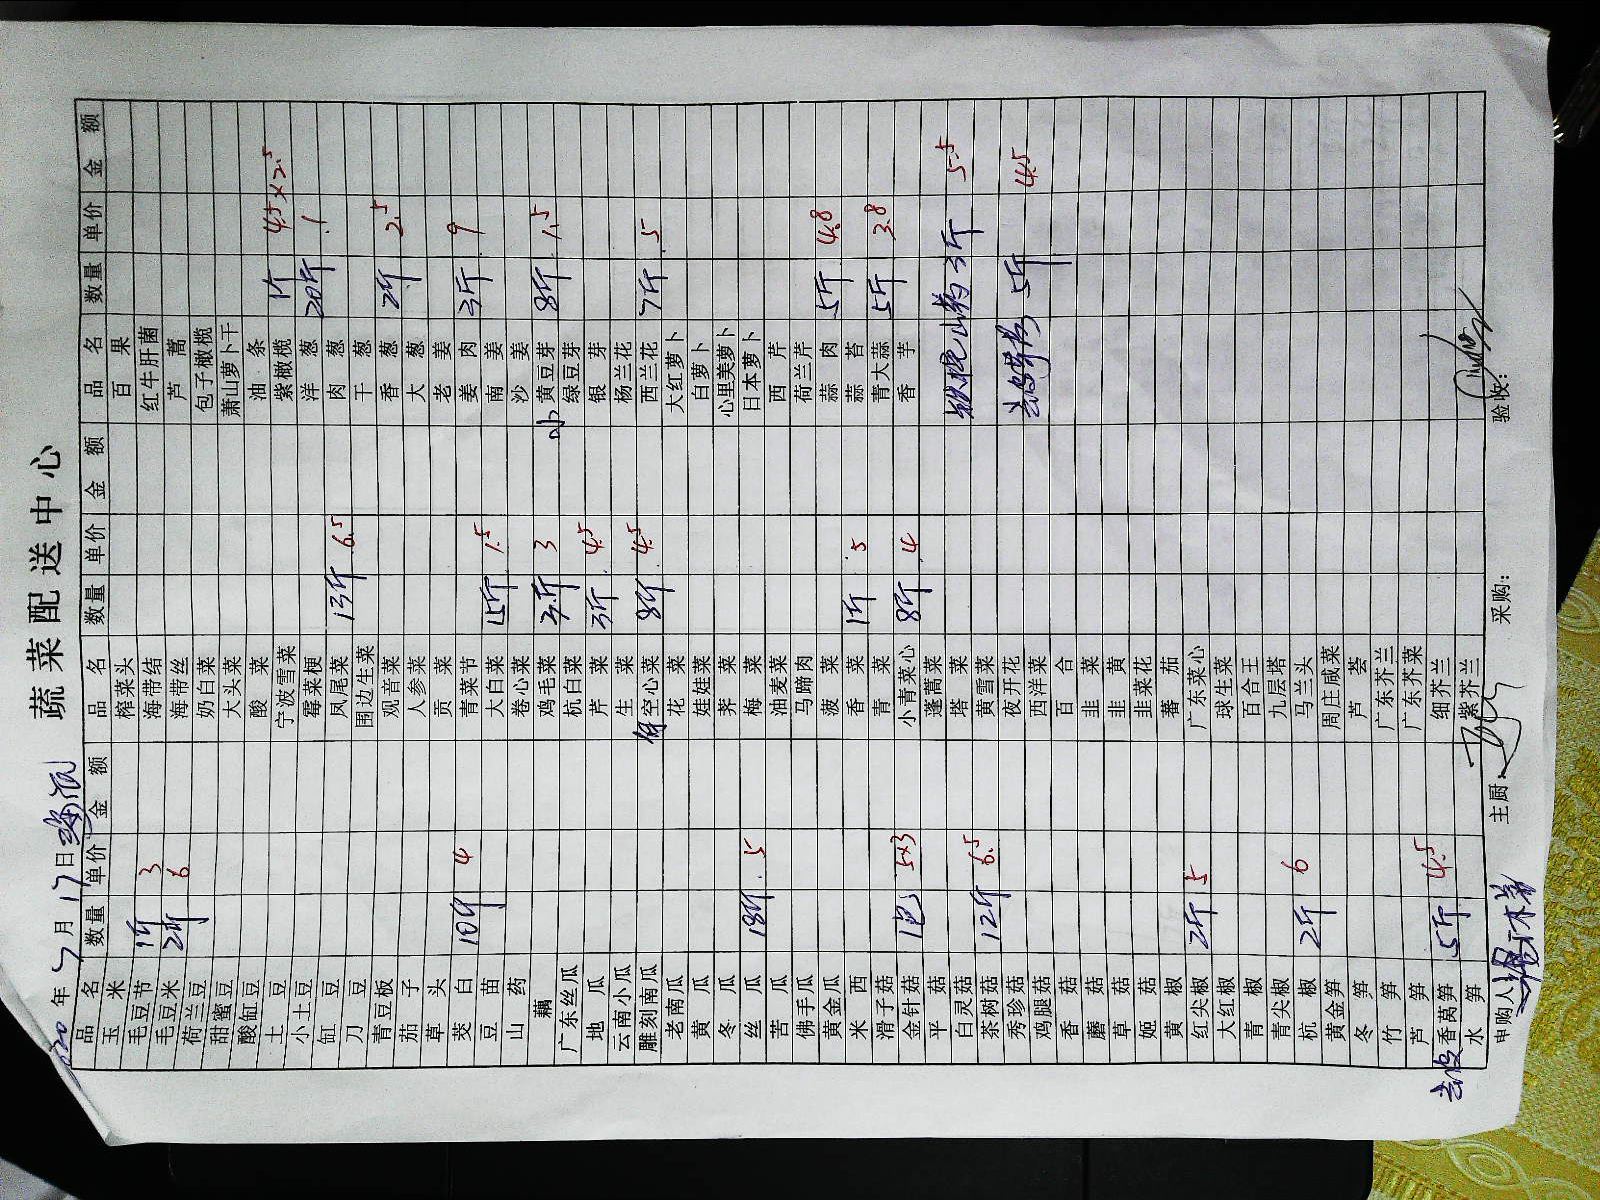 蔬菜配送中心
年 7月17日
品名 数量 单价 金额 品名 数量 单价 金额 品名 数量 单价 金额
玉米 榨菜头 百果
毛豆节 1斤 3 海带结 红牛肝菌
毛豆米 2斤 6 海带丝 芦蒿
荷兰豆 奶白菜 包子橄榄
甜蜜豆 大头菜 萧山萝卜干
酸缸豆 酸菜 油条
土豆 宁波雪菜 紫橄榄 1斤 4.5×2.5
小土豆 霉菜梗 洋葱 20斤 1
缸豆 凤尾菜 13斤 6.5 肉葱
刀豆 围边生菜 干葱
青豆板 观音菜 香葱 2斤 2.5
茄子 人参菜 大葱
草头 贡菜 老姜
茭白 10斤 4 青菜节 姜肉 3斤 9
豆苗 大白菜 15斤 1.5 南姜
山药 卷心菜 沙姜
藕 鸡毛菜 3斤 3 小黄豆芽 8斤 1.5
广东丝瓜 杭白菜 绿豆芽
地瓜 芹菜 3斤 4.5 银芽
云南小瓜 生菜 杨兰花
雕刻南瓜 空心菜 8斤 4.5 西兰花 7斤 5
老南瓜 花菜 大红萝卜
黄瓜 娃娃菜 白萝卜
冬瓜 荠菜 心里美萝卜
丝瓜 18斤 5 梅菜 日本萝卜
苦瓜 油麦菜 西芹
佛手瓜 马蹄肉 荷兰芹
黄金瓜 菠菜 蒜肉 5斤 4.8
米西 香菜 1斤 5 蒜苔
滑子菇 青菜 青大蒜 5斤 3.8
金针菇 1包 5×3 小青菜心 8斤 4 香芋
平菇 蓬蒿菜
白灵菇 塔菜 铁棍山药 3斤 5.5
茶树菇 12斤 6.5 黄雪菜
秀珍菇 夜开花 5斤 4.5
鸡腿菇 西洋菜
香菇 百合
蘑菇 韭菜
草菇 韭黄
姬菇 韭菜花
黄椒 蕃茄
红尖椒 2斤 5 广东菜心
大红椒 球生菜
青椒 百合王
青尖椒 九层塔
杭椒 2斤 6 马兰头
黄金笋 周庄咸菜
冬笋 芦荟
竹笋 广东芥兰
芦笋 广东芥菜
去皮香莴笋 5斤 4.5 细芥兰
水笋 紫芥兰
申购人: 主厨: 采购: 验收: